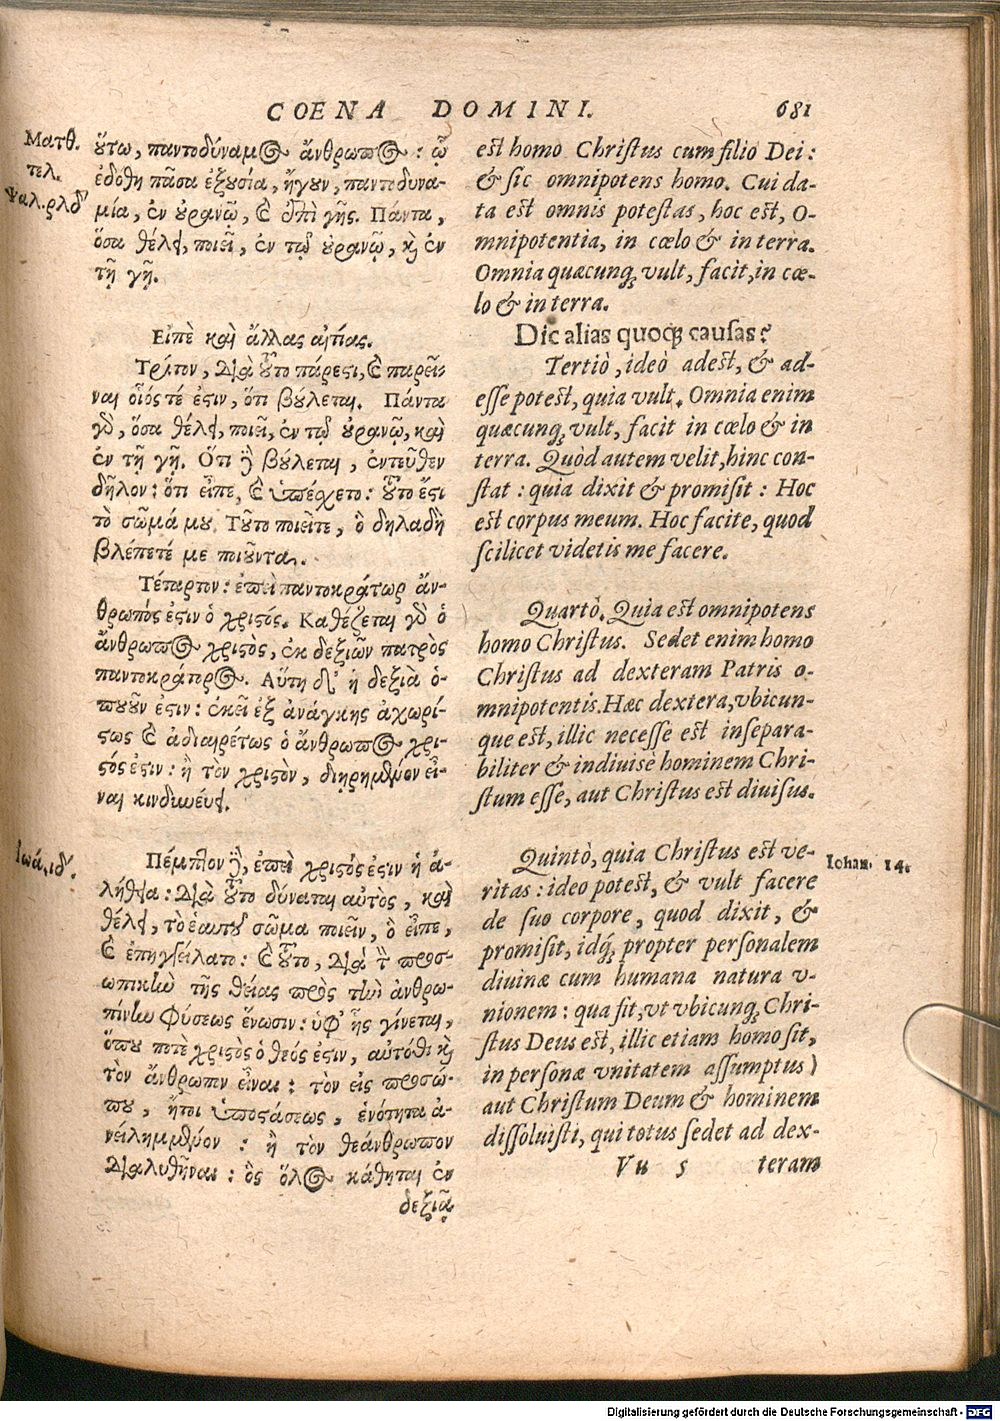 COENA DOMINI. 681
Ματθ.
τελ.
Ψαλ. ρλδʹ
οὕτω, παντοδύναμος ἄνθρωπος : ᾧ
ἐδόθη πᾶσα ἐξουσία, ἤγουν, παντοδυνα-
μία, ἐν οὐρανῷ, καὶ ἐπὶ γῆς. Πάντα,
ὅσα θέλει, ποιεῖ, ἐν τῷ οὐρανῷ, καὶ ἐν
τῇ γῇ.
Εἰπὲ καὶ ἄλλας αἰτίας.
Τρίτον, Διὰ τοῦτο πάρεστι, καὶ παρεῖ-
ναι οἷός τέ ἐστιν, ὅτι βούλεται. Πάντα
γὰρ, ὅσα θέλει, ποιεῖ, ἐν τῷ οὐρανῷ, καὶ
ἐν τῇ γῇ. Οτι δὲ βούλεται, ἐντεῦθεν
δῆλον : ὅτι εἶπε, καὶ ὑπέσχετο : τοῦτο ἔστι
τὸ σῶμά μου. Τοῦτο ποιεῖτε, ὃ δηλαδὴ
βλέπετέ με ποιοῦντα.
Τέταρτον : ἐπεὶ παντοκράτωρ ἄν-
θρωπός ἐστιν ὁ χριστός. Καθέζεται γὰρ ὁ
ἄνθρωπος χριστὸς, ἐκ δεξιῶν πατρὸς
παντοκράτορος. Αὕτη δ' ἡ δεξιὰ ὁ-
πουοῦν ἐστιν : ἐκεῖ ἐξ ἀνάγκης ἀχωρί-
στως καὶ ἀδιαιρέτως ὁ ἄνθρωπος χρι-
στός ἐστιν : ἢ τὸν χριστὸν, διῃρημένον εἶ-
ναι κινδυνεύει.
Ιωά. ιδʹ.
Πέμπτον δὲ, ἐπεὶ χριστός ἐστιν ἡ ἀ-
λήθεια : Διὰ τοῦτο δύναται αὐτὸς, καὶ
θέλει, τὸ ἑαυτοῦ σῶμα ποιεῖν, ὃ εἶπε,
καὶ ἐπηγγείλατο : καὶ τοῦτο, Διὰ τὴν προσ-
ωπικὴν τῆς θείας πρὸς τὴν ἀνθρω-
πίνην φύσεως ἕνωσιν : ὑφ' ἧς γίνεται,
ὅπου ποτὲ χριστὸς ὁ θεός ἐστιν, αὐτόθι καὶ
τὸν ἄνθρωπον εἶναι : τὸν εἰς προσώ-
που, ἤτοι ὑποστάσεως, ἑνότητα ἀ-
νειλημμένον : ἢ τὸν θεάνθρωπον
Διαλυθῆναι : ὃς ὅλος κάθηται ἐν
δεξιᾷ
est homo Christus cum filio Dei :
& sic omnipotens homo. Cui da-
ta est omnis potestas, hoc est, O-
mnipotentia, in cœlo & in terra.
Omnia quæcunq; vult, facit, in cœ-
lo & in terra.
Dic alias quoq; causas?
Tertiò, ideò adest, & ad-
esse potest, quia vult. Omnia enim
quæcunq; vult, facit in cœlo & in
terra. Quòd autem velit, hinc con-
stat : quia dixit & promisit : Hoc
est corpus meum. Hoc facite, quod
scilicet videtis me facere.
Quartò. Quia est omnipotens
homo Christus. Sedet enim homo
Christus ad dexteram Patris o-
mnipotentis. Hæc dextera, vbicun-
que est, illic necesse est insepara-
biliter & indiuisè hominem Chri-
stum esse, aut Christus est diuisus.
Quintò, quia Christus est ve-
ritas : ideo potest, & vult facere
de suo corpore, quod dixit, &
promisit, idq́; propter personalem
diuinæ cum humana natura v-
nionem : qua fit, vt vbicunq; Chri-
stus Deus est, illic etiam homo sit,
in personæ vnitatem assumptus)
aut Christum Deum & hominem
dissoluisti, qui totus sedet ad dex-
Iohan. 14.
Vu 5 teram
Digitalisierung gefördert durch die Deutsche Forschungsgemeinschaft - DFG